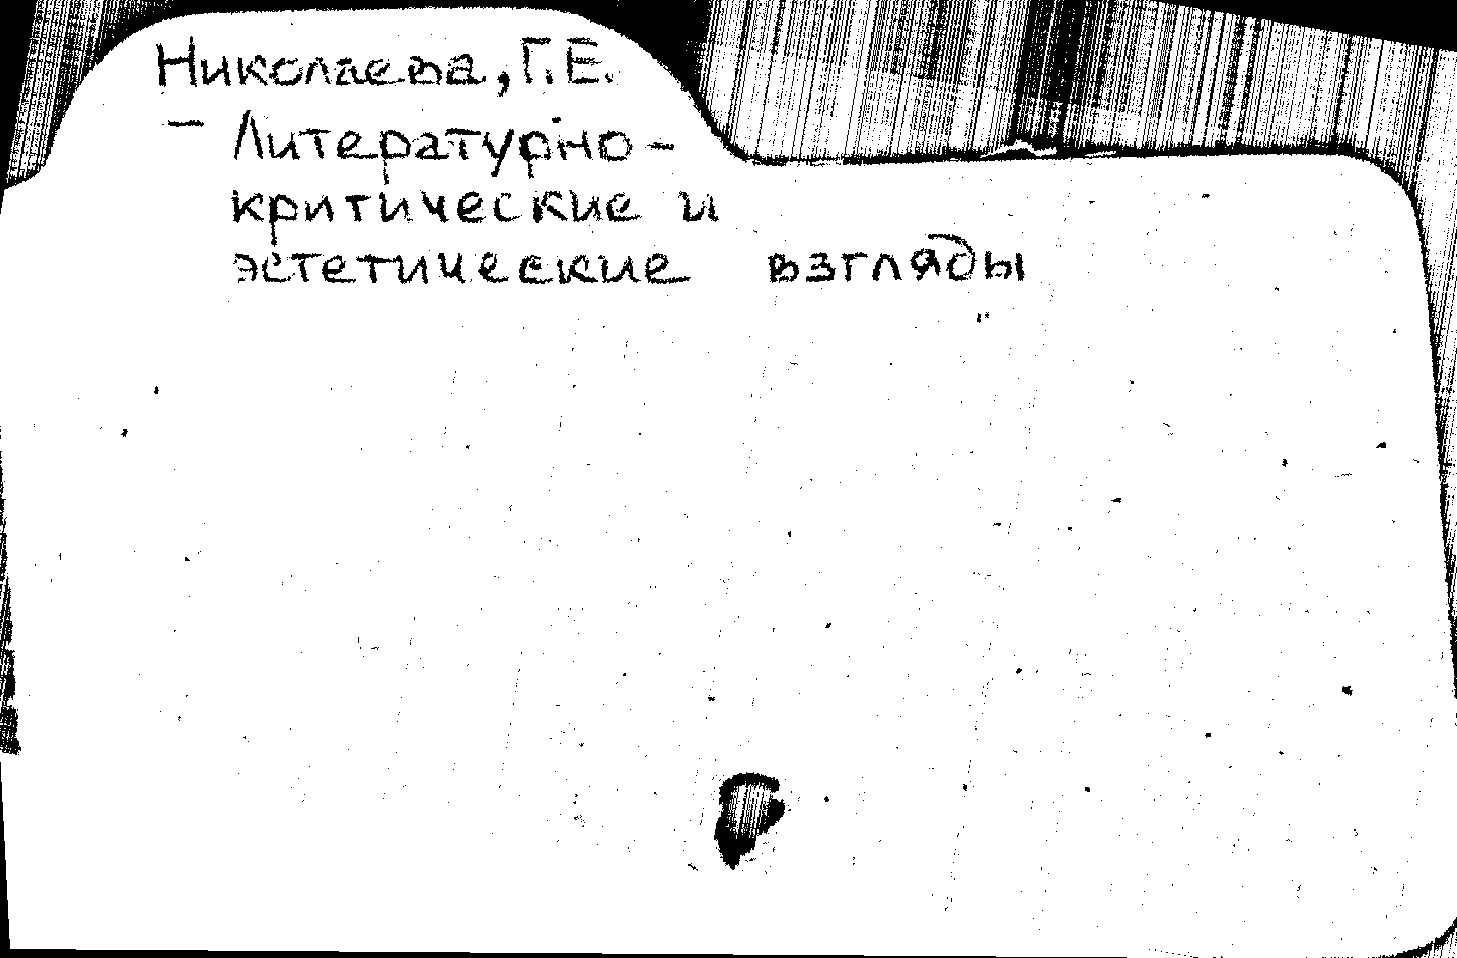 Николаева, Г.Е.
– Литературно-
критические и
эстетические взгляды